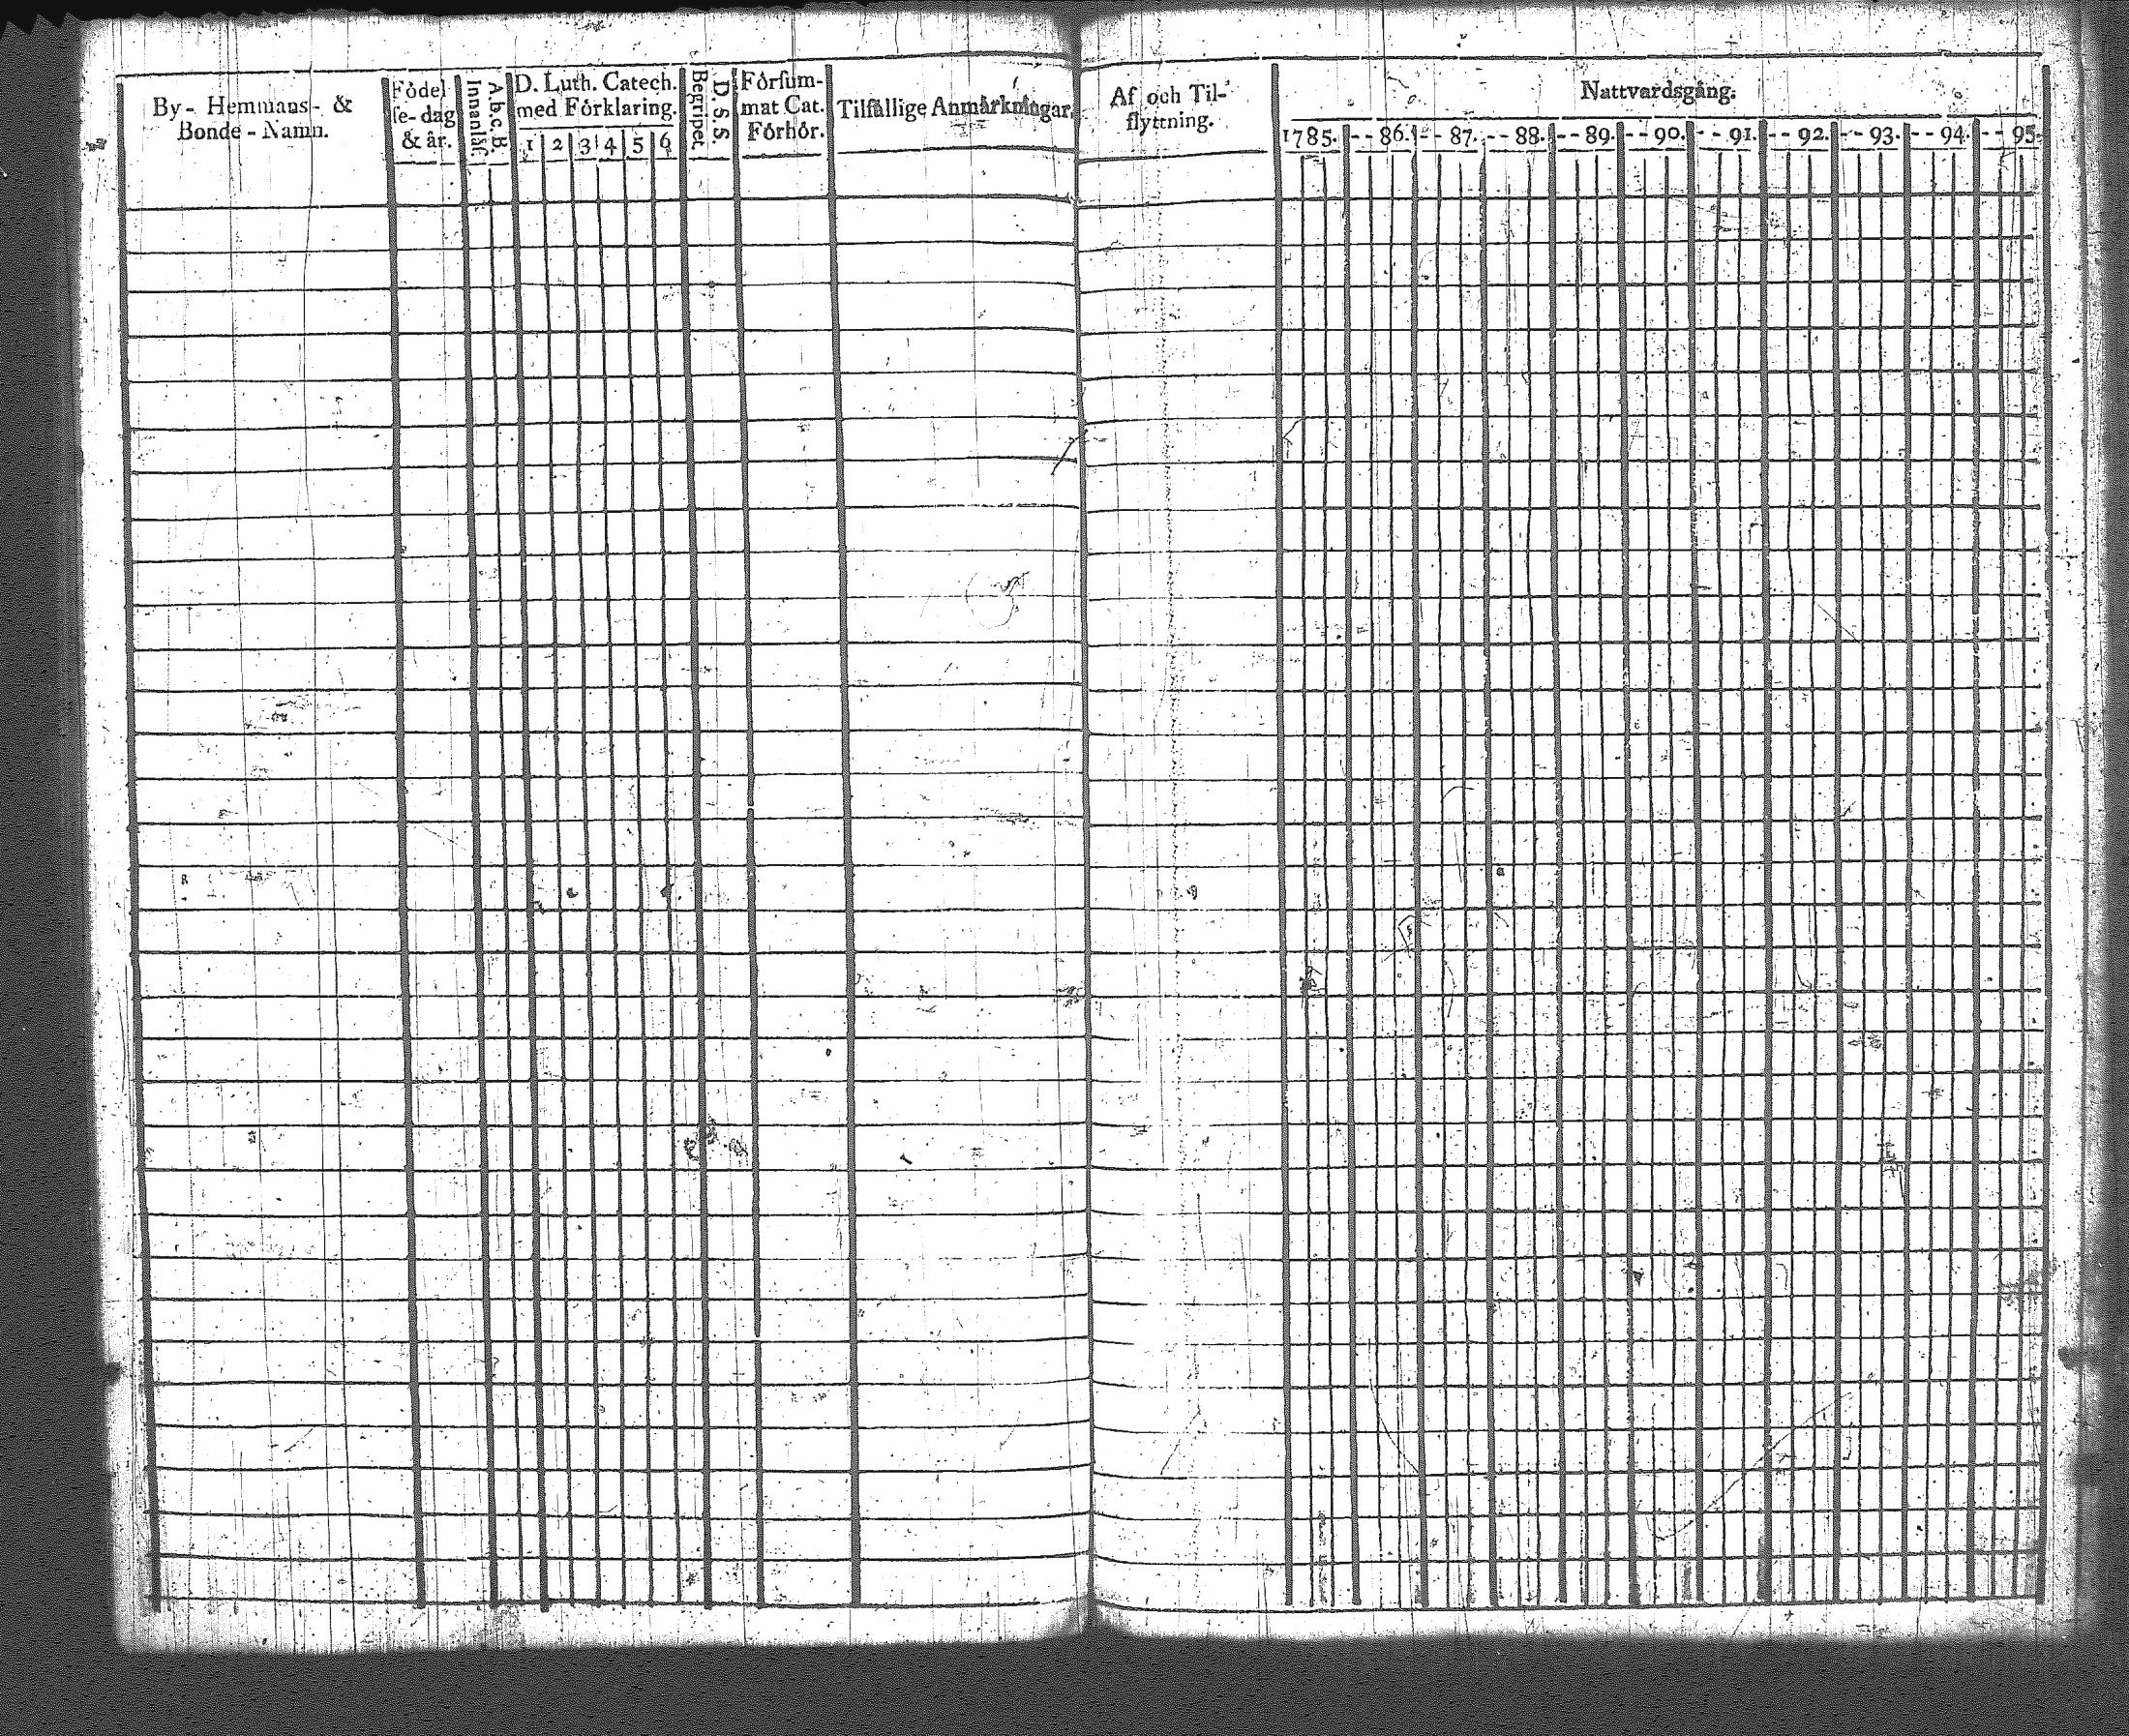 By- Hemmans- &
Bonde-Namn.
Fódel
ſe-dag
& år.
A.b.c.B.
Innanläſ.
D. Luth. Catech.
med Fórklaring.
1 2 3 4 5 6
D. S. S.
Begripet.
Fórſum-
mat Cat.
Fórhór.
Tilfällige Anmärkningar.
Af och Til-
flyttning.
Nattvardsgång.
1785. - - 86. - - 87. - - 88. - - 89. - - 90. - - 91. - - 92. - - 93. - - 94. - - 95.